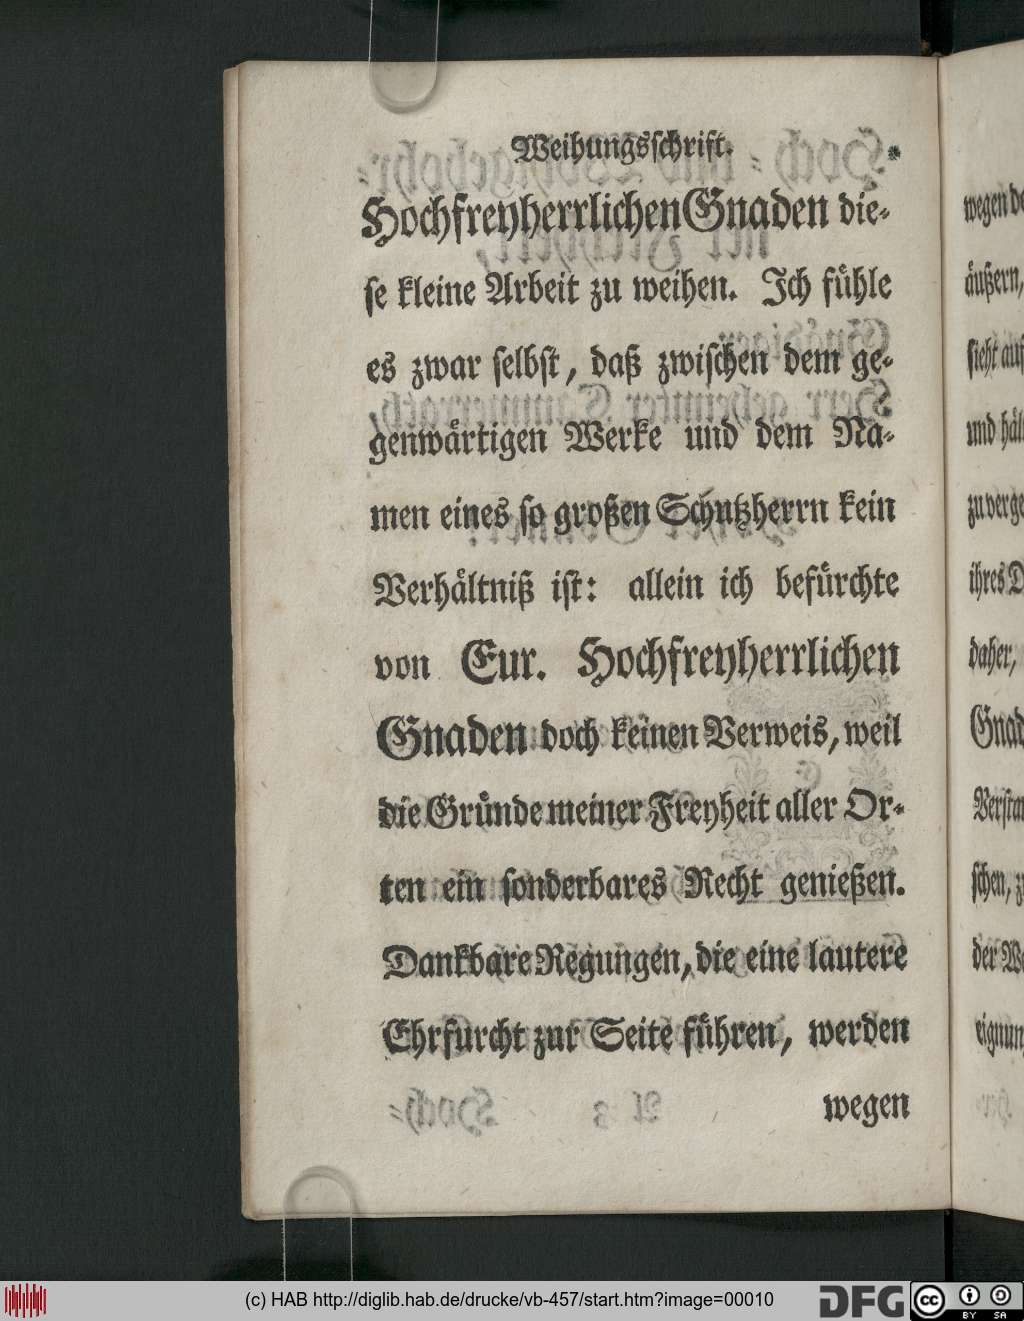 Weihungsschrift.
Hochfreyherrlichen Gnaden die-
se kleine Arbeit zu weihen. Ich fühle
es zwar selbst, daß zwischen dem ge-
genwärtigen Werke und dem Na-
men eines so großen Schutzherrn kein
Verhältniß ist: allein ich befürchte
von Eur. Hochfreyherrlichen
Gnaden doch keinen Verweis, weil
die Gründe meiner Freyheit aller Or-
ten ein sonderbares Recht genießen.
Dankbare Regungen, die eine lautere
Ehrfurcht zur Seite führen, werden
wegen
wegen
äußern,
sieht auf
und
ihres
daher,
schen,
der
(c) HAB http://diglib.hab.de/drucke/vb-457/start.htm?image=00010
DFG
cc
BY SA